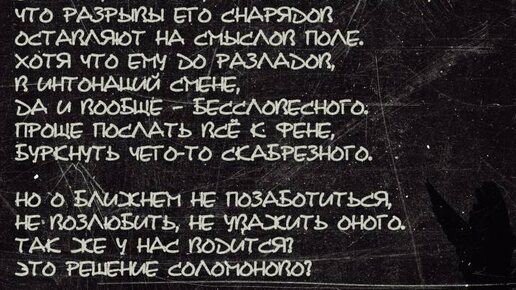 ЧТО РАЗРЫВЫ ЕГО СНАРЯДОВ
ОСТАВЛЯЮТ НА СМЫСЛОВ ПОЛЕ.
ХОТЯ ЧТО ЕМУ ДО РАЗЛАДОВ,
В ИНТОНАЦИЙ СМЕНЕ,
ДА И ВООБЩЕ – БЕССЛОВЕСНОГО.
ПРОЩЕ ПОСЛАТЬ ВСЁ К ФЕНЕ,
БУРКНУТЬ ЧЕГО-ТО СКАБРЕЗНОГО.
НО О БЛИЖНЕМ НЕ ПОЗАБОТИТЬСЯ,
НЕ ВОЗЛЮБИТЬ, НЕ УВАЖИТЬ ОНОГО.
ТАК ЖЕ У НАС ВОДИТСЯ?
ЭТО РЕШЕНИЕ СОЛОМОНОВО?